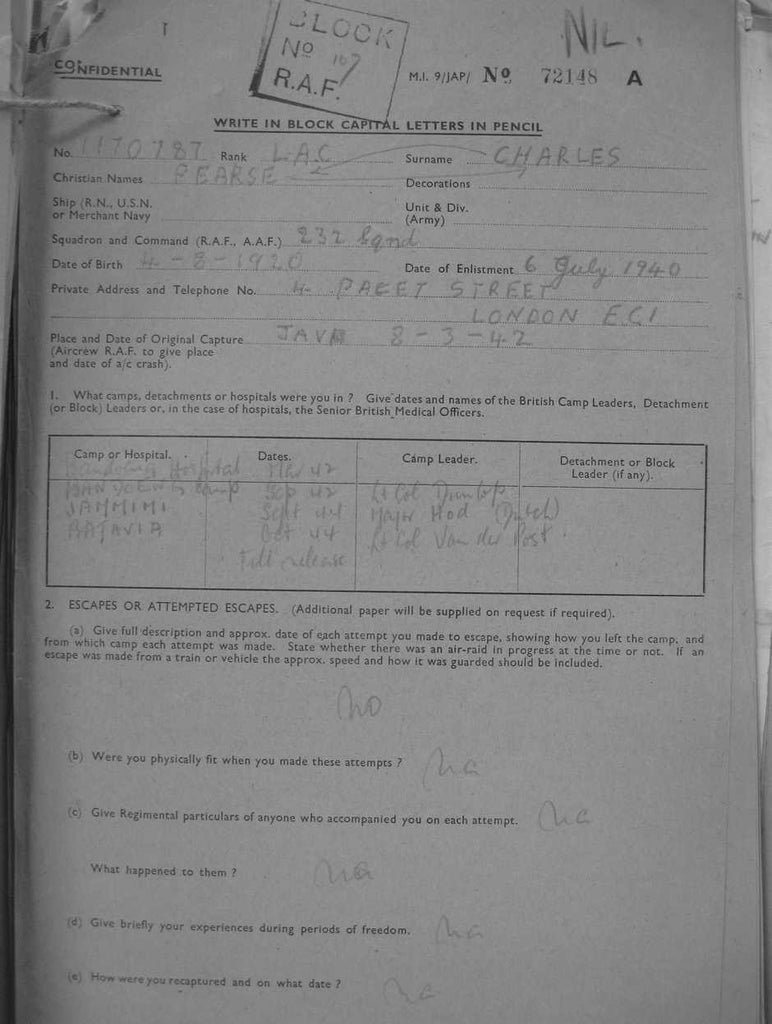 BLOCK
No 167
R.A.F.
NIL.
CONFIDENTIAL
M.I. 9/JAP/ No 72148 A
WRITE IN BLOCK CAPITAL LETTERS IN PENCIL
No. 1170787 Rank LAC Surname CHARLES
Christian Names PEARSE Decorations
Ship (R.N., U.S.N. or Merchant Navy Unit & Div. (Army)
Squadron and Command (R.A.F., A.A.F.) 232 Sqnd
Date of Birth 4-8-1920 Date of Enlistment 6 July 1940
Private Address and Telephone No. 4 PAGET STREET
LONDON EC1
Place and Date of Original Capture JAVA 8-3-42
(Aircrew R.A.F. to give place
and date of a/c crash).
1. What camps, detachments or hospitals were you in ? Give dates and names of the British Camp Leaders, Detachment
(or Block) Leaders or, in the case of hospitals, the Senior British Medical Officers.
Camp or Hospital. Dates. Camp Leader. Detachment or Block Leader (if any).
Hospital Mar 42
BANDOENG Camp Sep 42 Lt Col Dunlop
Sept 44 Major Hod (Dutch)
BATAVIA Oct 44 Lt Col Van der Post.
Till release
2. ESCAPES OR ATTEMPTED ESCAPES. (Additional paper will be supplied on request if required).
(a) Give full description and approx. date of each attempt you made to escape, showing how you left the camp, and
from which camp each attempt was made. State whether there was an air-raid in progress at the time or not. If an
escape was made from a train or vehicle the approx. speed and how it was guarded should be included.
No
(b) Were you physically fit when you made these attempts ? na
(c) Give Regimental particulars of anyone who accompanied you on each attempt. na
What happened to them ? na
(d) Give briefly your experiences during periods of freedom. na
(e) How were you recaptured and on what date ? na